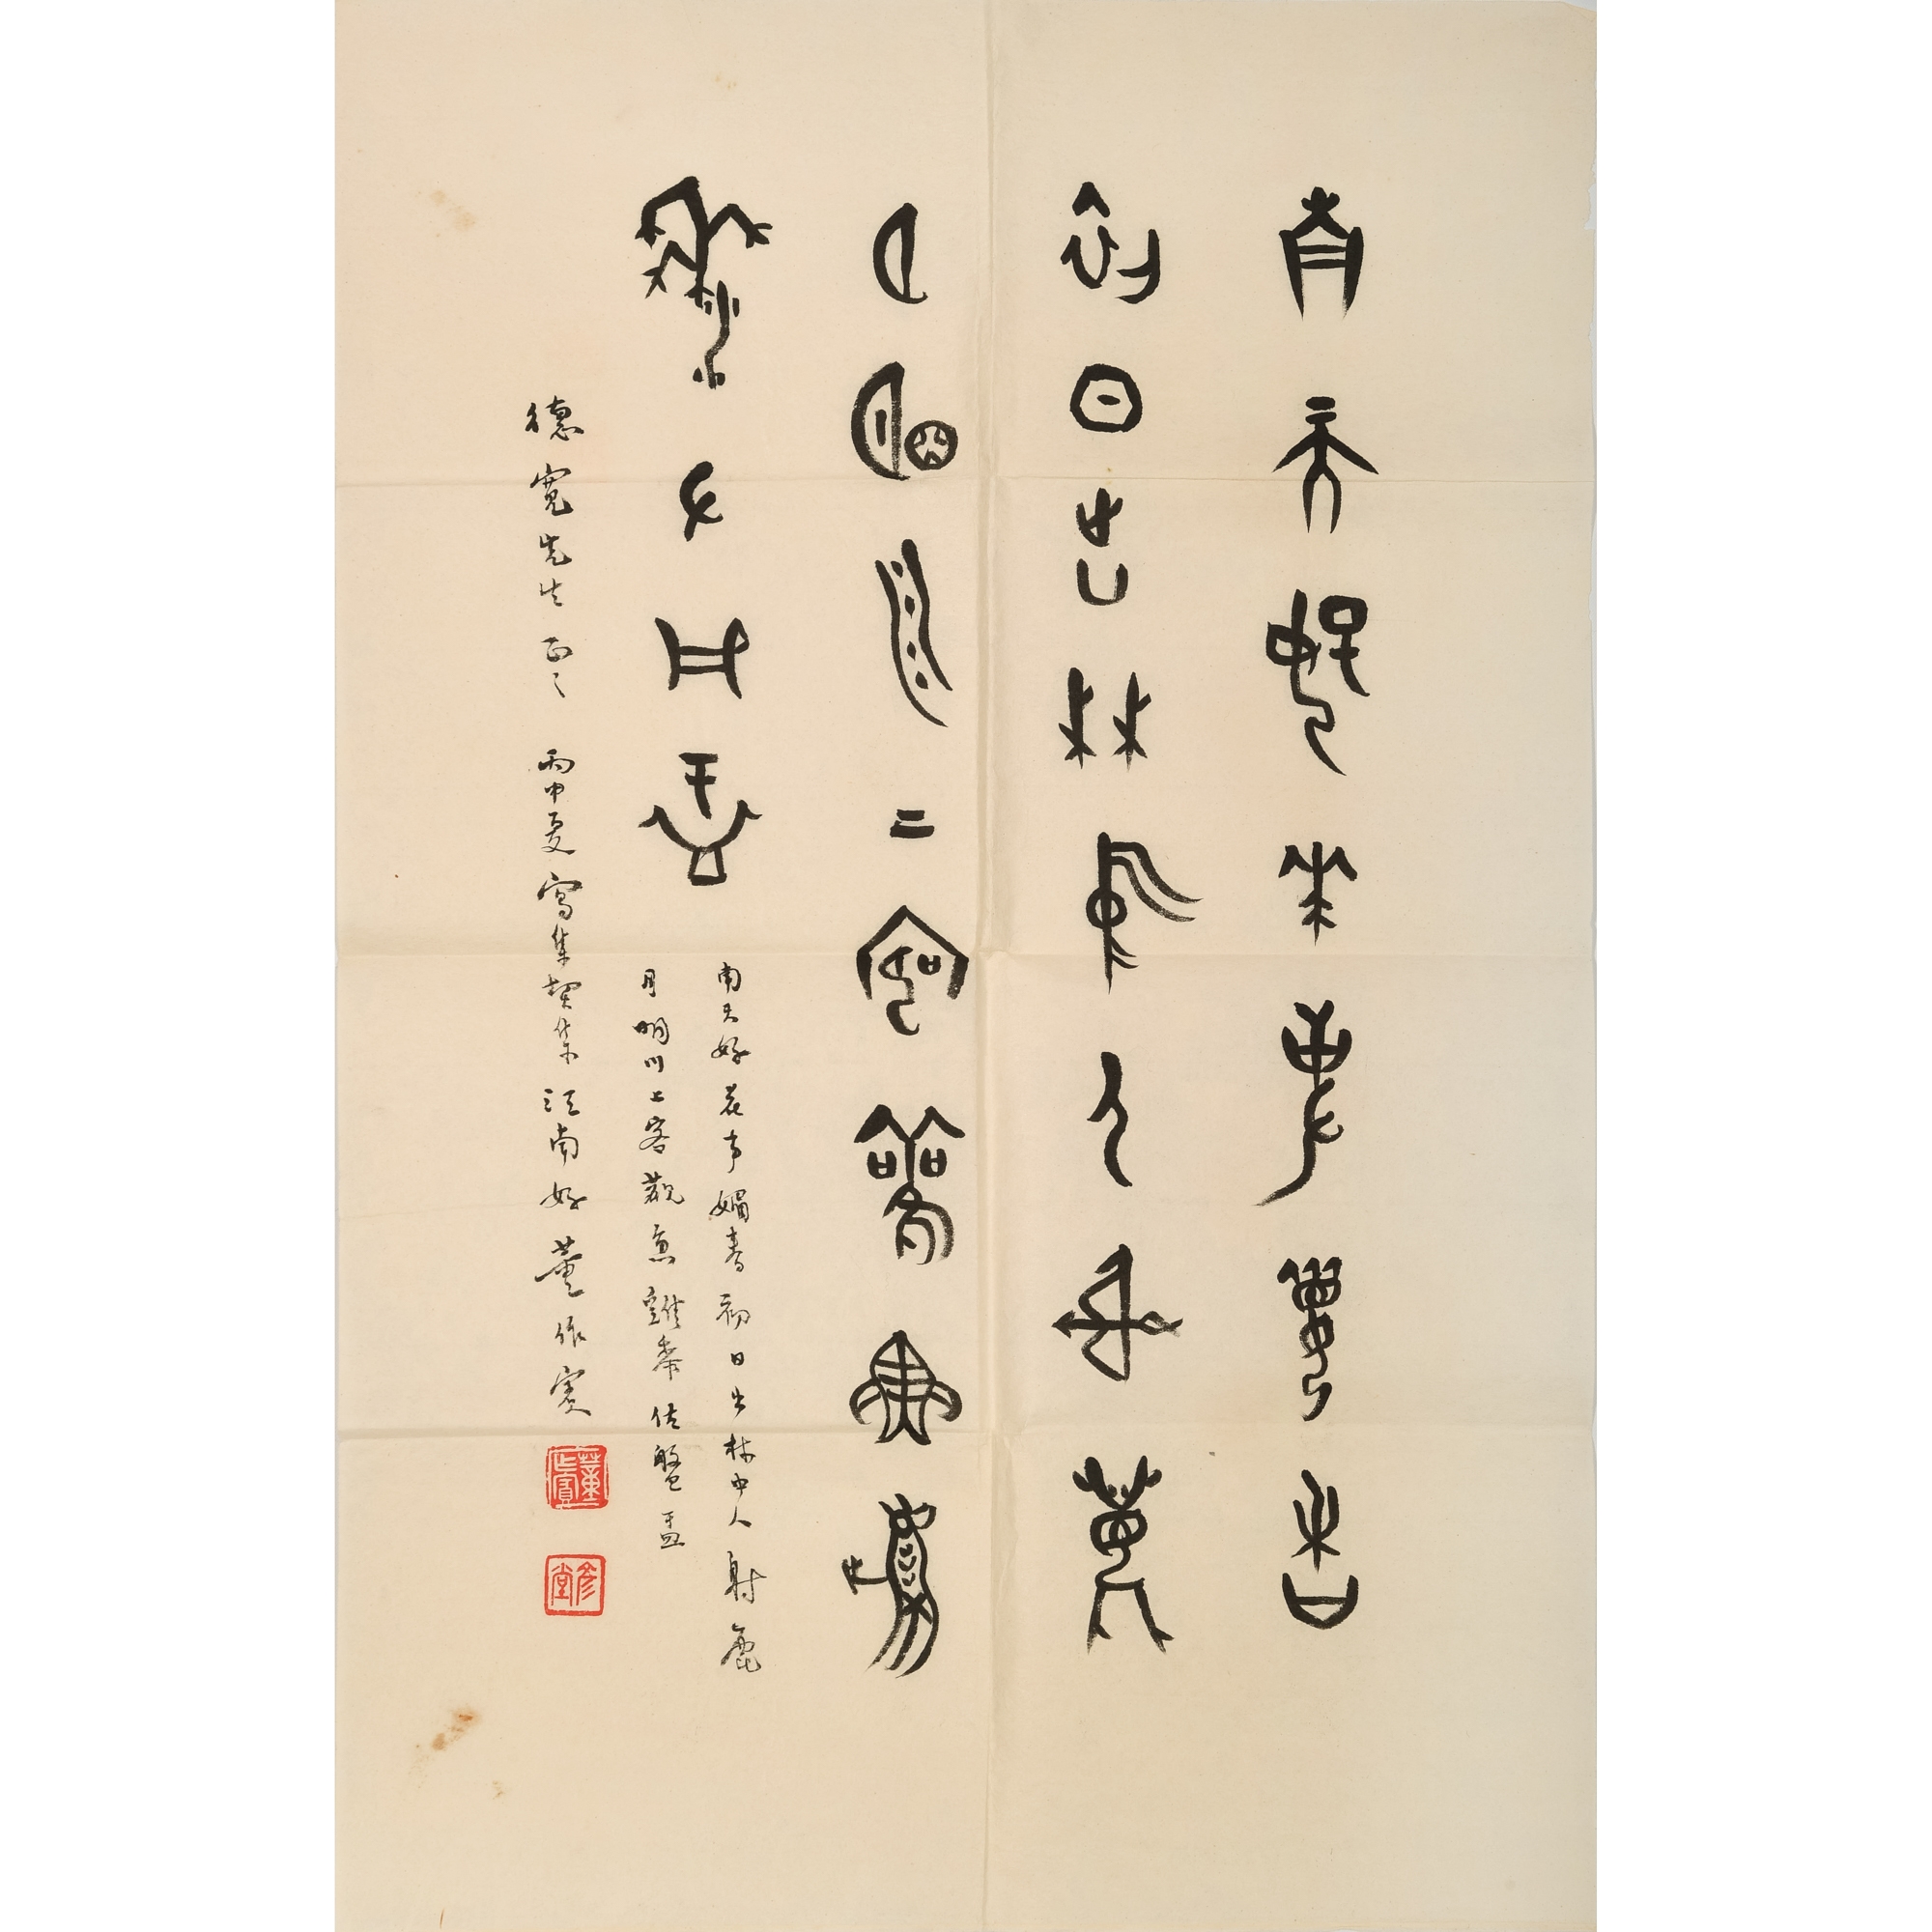 南天好花事媚春
初日出林中人射鹿
月明川上客觀魚雞
黍佐盤盂
南天好花事媚春初日出林中人射鹿
月明川上客觀魚雞黍佐盤盂
德寬先生正之 丙申夏寫集契集江南好 董作賓
董作賓
彥堂